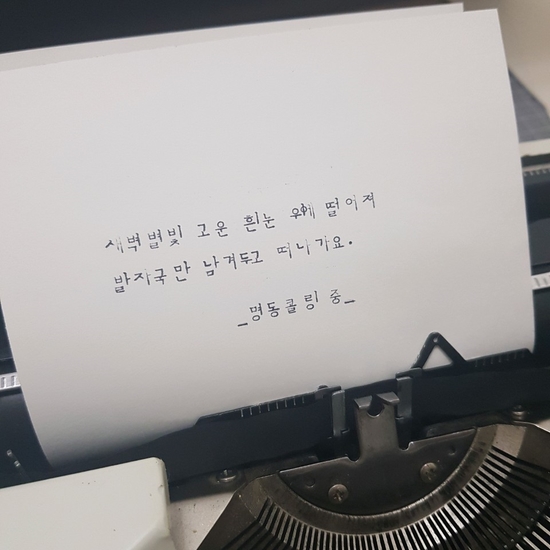 새벽별빛 고운 흰눈 위에 떨어져
발자국만 남겨두고 떠나가요.
_명동콜링 중_